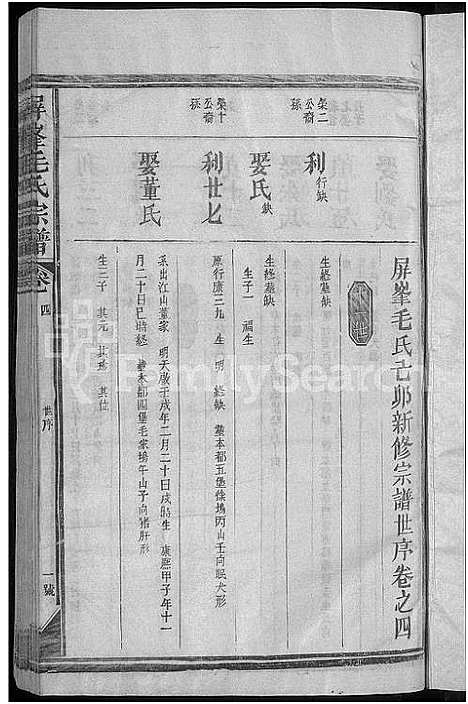 屏峯毛氏吉卯新修宗譜世序卷之四
榮二公裔孫
利行缺
生終墓缺
娶氏缺
生終墓缺
生子一 福生
榮十公裔孫
利廿七
原行康三九 生 明 終缺 墓本都五堡條塢丙山壬向眠犬形
娶董氏
系出江山董家 明天啟壬戌年二月二十日戌時生 康熙甲子年十一
月二十日巳時終 墓本都四堡毛家塢午山子向猪肝形
生三子 其元 其位
屏峯毛氏宗譜
卷四
世序
一號
FamilySearch